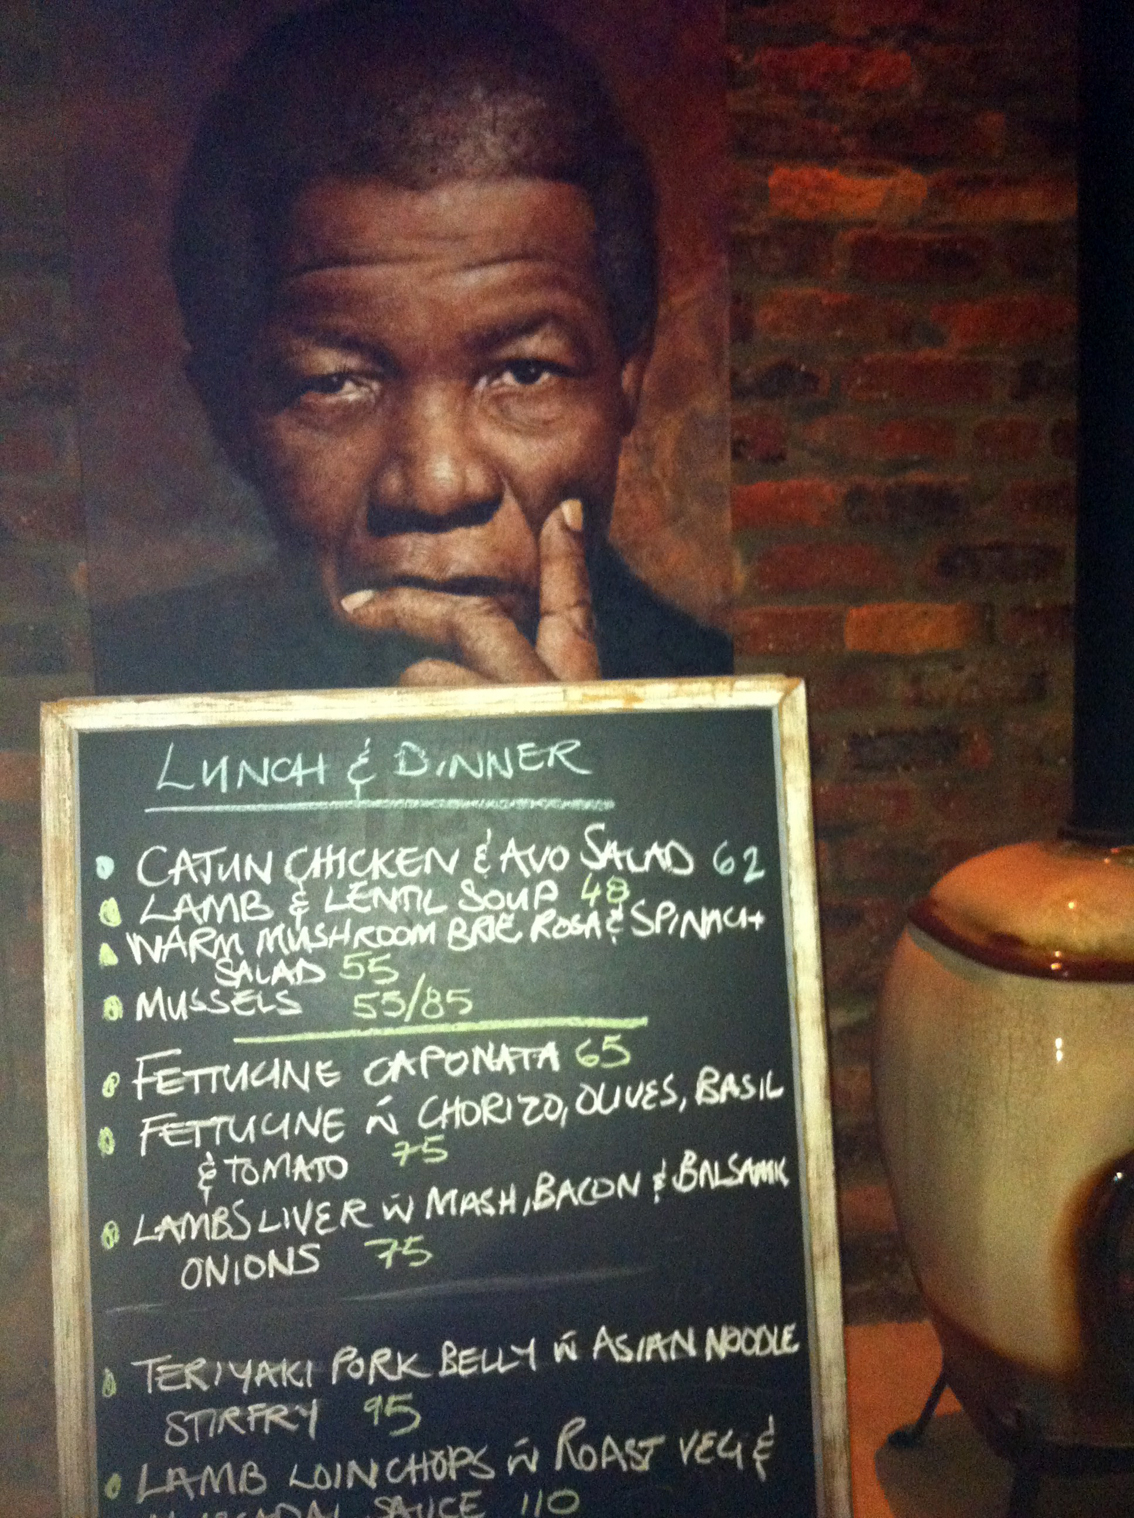 LUNCH & DINNER
CAJUN CHICKEN & AVO SALAD 62
LAMB & LENTIL SOUP 48
WARM MUSHROOM BRIE ROSA & SPINACH
SALAD 55
MUSSELS 55/85
FETTUCINE CAPONATA 65
FETTUCINE W CHORIZO, OLIVES, BASIL
& TOMATO 75
LAMBS LIVER W MASH, BACON & BALSAMIC
ONIONS 75
TERIYAKI PORK BELLY W ASIAN NOODLE
STIRFRY 95
LAMB LOIN CHOPS W ROAST VEG &
SAUCE 110